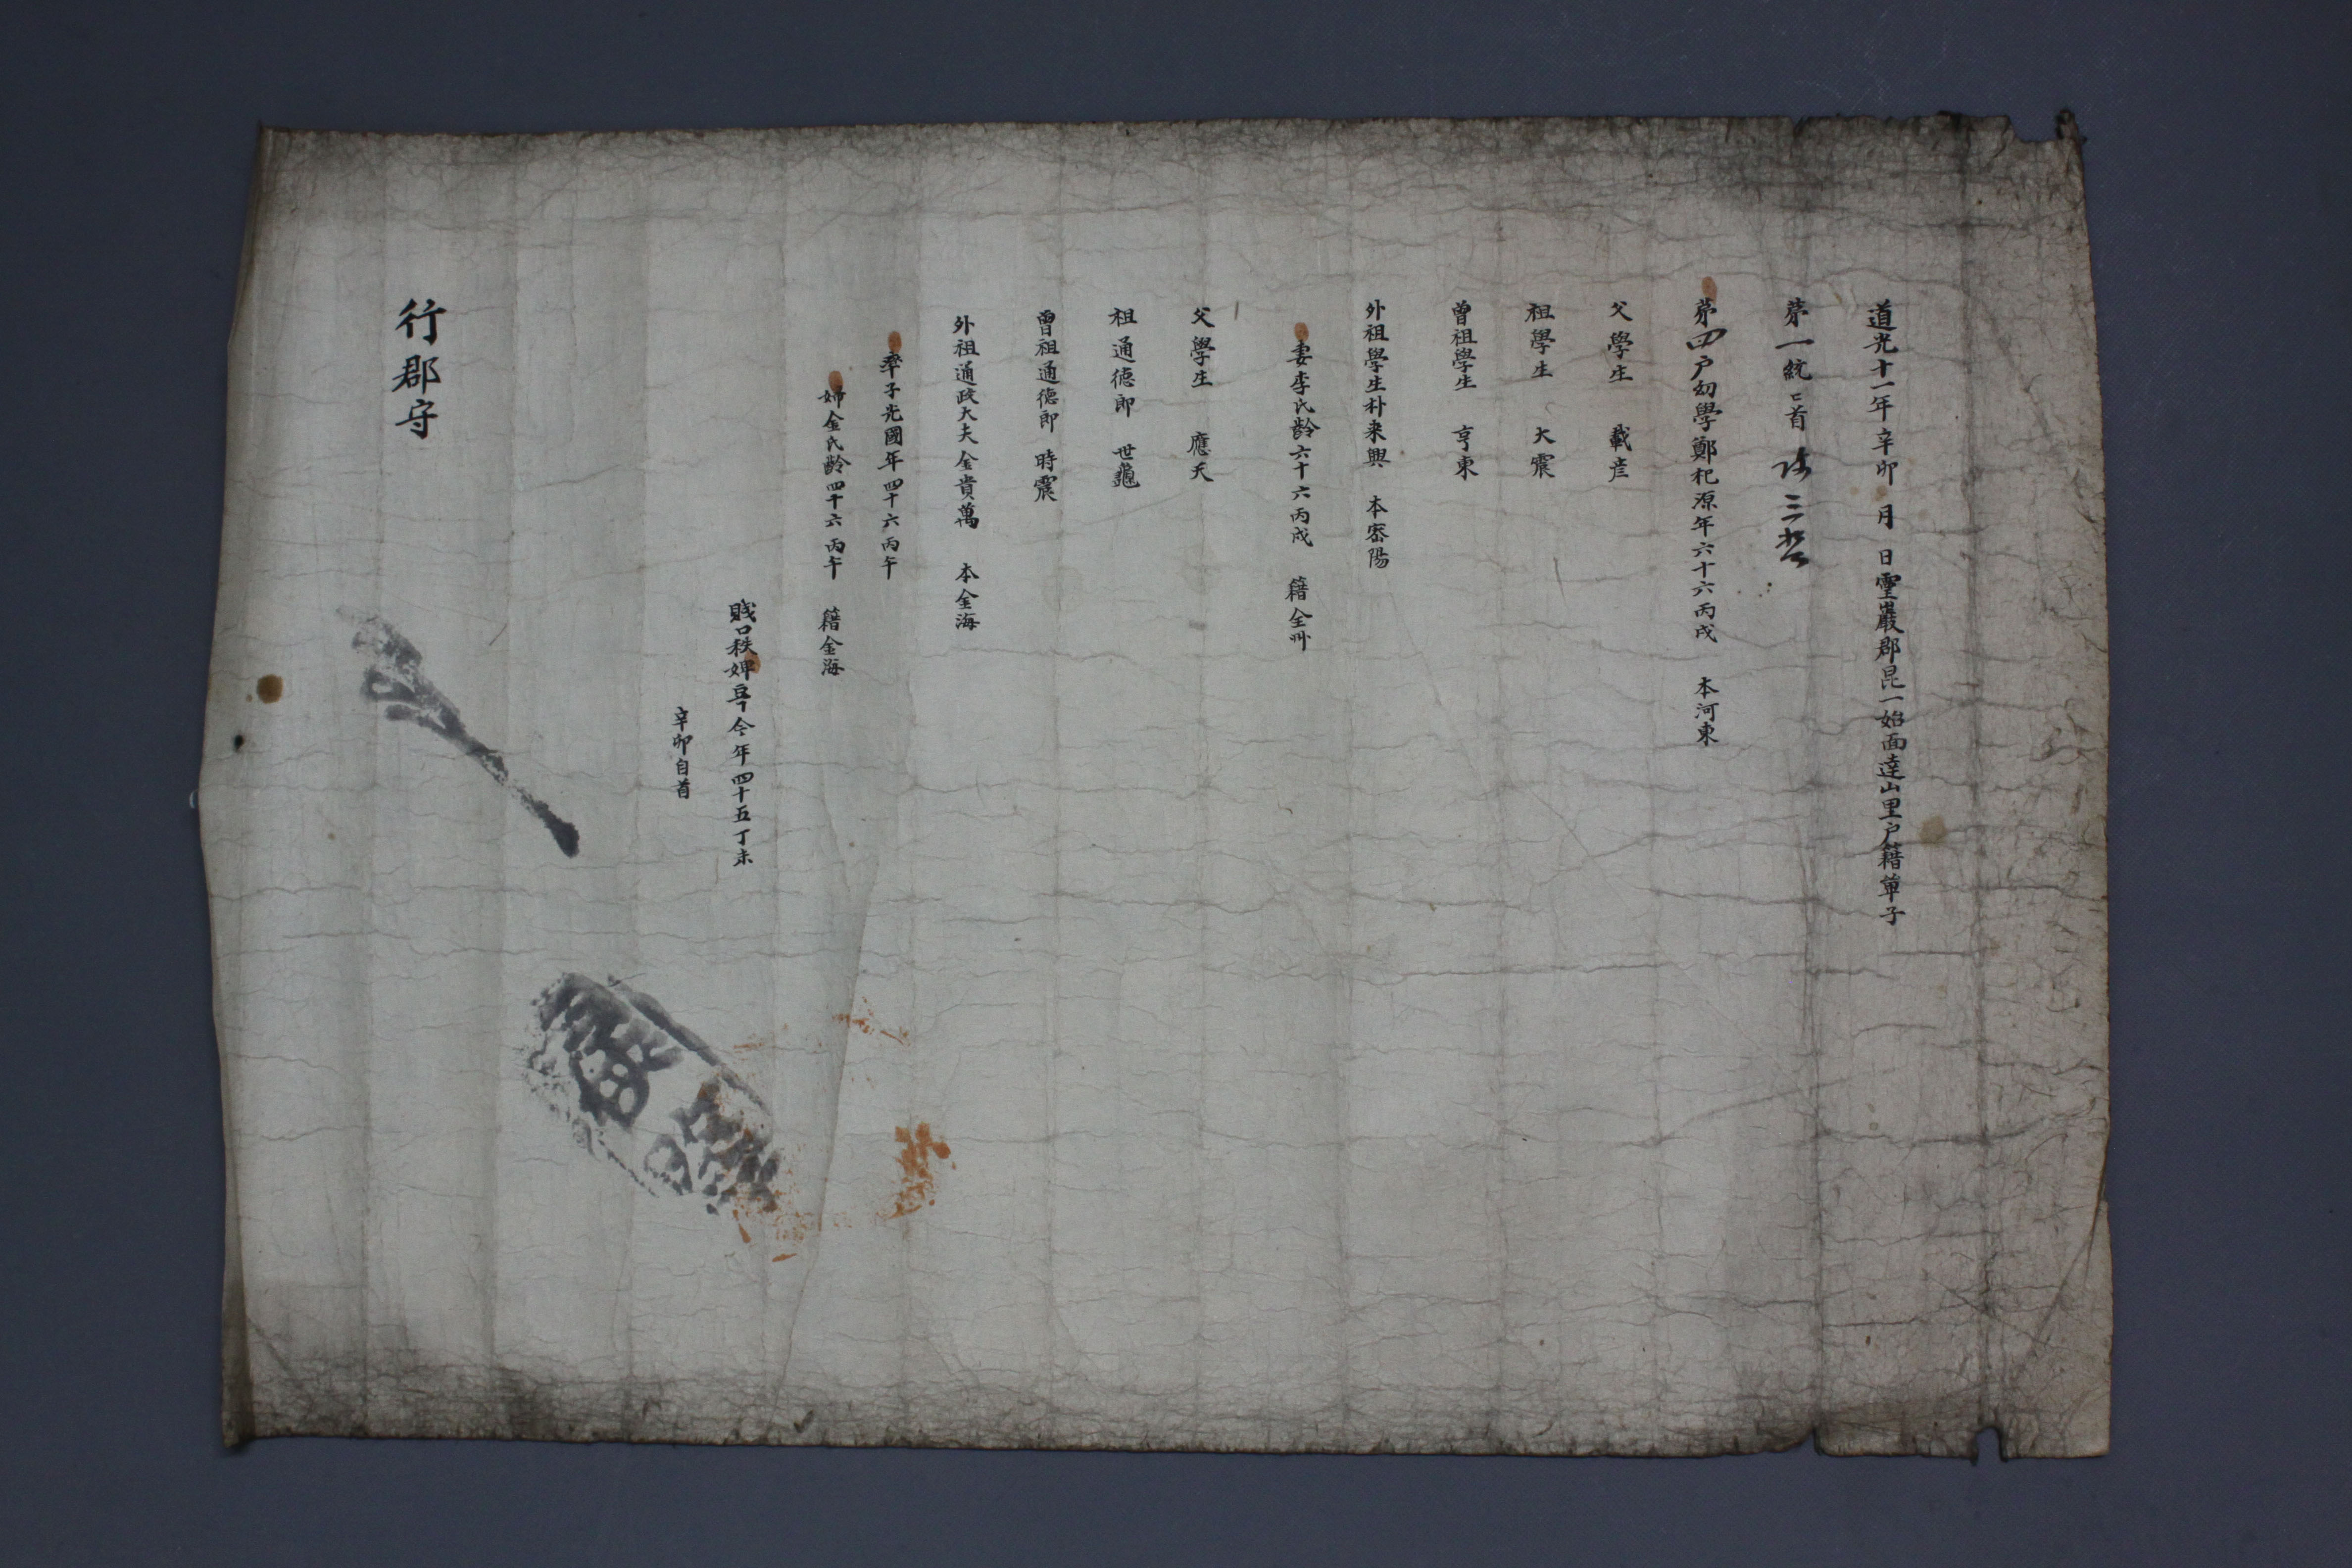 道光十一年辛卯 月 日靈巖郡昆一始面達山里戶籍單子
第一統〻首 三
第四戶幼學鄭杞源年六十六丙戌 本河東
父學生 載彦
祖學生 大震
曾祖學生 亨東
外祖學生朴來興 本密陽
妻李氏齡六十六丙戌 籍全州
父學生 應天
祖通德郎 世
曾祖通德郎 時震
外祖通政大夫金貴萬 本金海
率子光國年四十六丙午
婦金氏齡四十六丙午 籍金海
賤口秩婢 今年四十五丁未
辛卯自首
行郡守